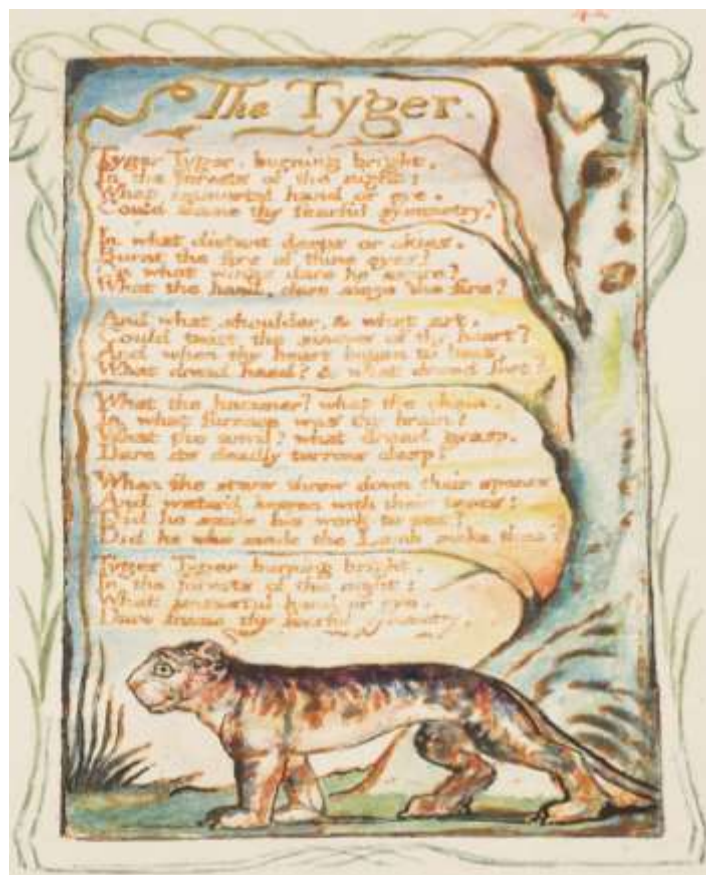 42
The Tyger.
Tyger Tyger, burning bright,
In the forests of the night;
What immortal hand or eye,
Could frame thy fearful symmetry?
In what distant deeps or skies,
Burnt the fire of thine eyes?
On what wings dare he aspire?
What the hand, dare sieze the fire?
And what shoulder, & what art,
Could twist the sinews of thy heart?
And when thy heart began to beat,
What dread hand? & what dread feet?
What the hammer? what the chain,
In what furnace was thy brain?
What the anvil? what dread grasp,
Dare its deadly terrors clasp!
When the stars threw down their spears
And water'd heaven with their tears:
Did he smile his work to see?
Did he who made the Lamb make thee?
Tyger Tyger burning bright,
In the forests of the night:
What immortal hand or eye,
Dare frame thy fearful symmetry?